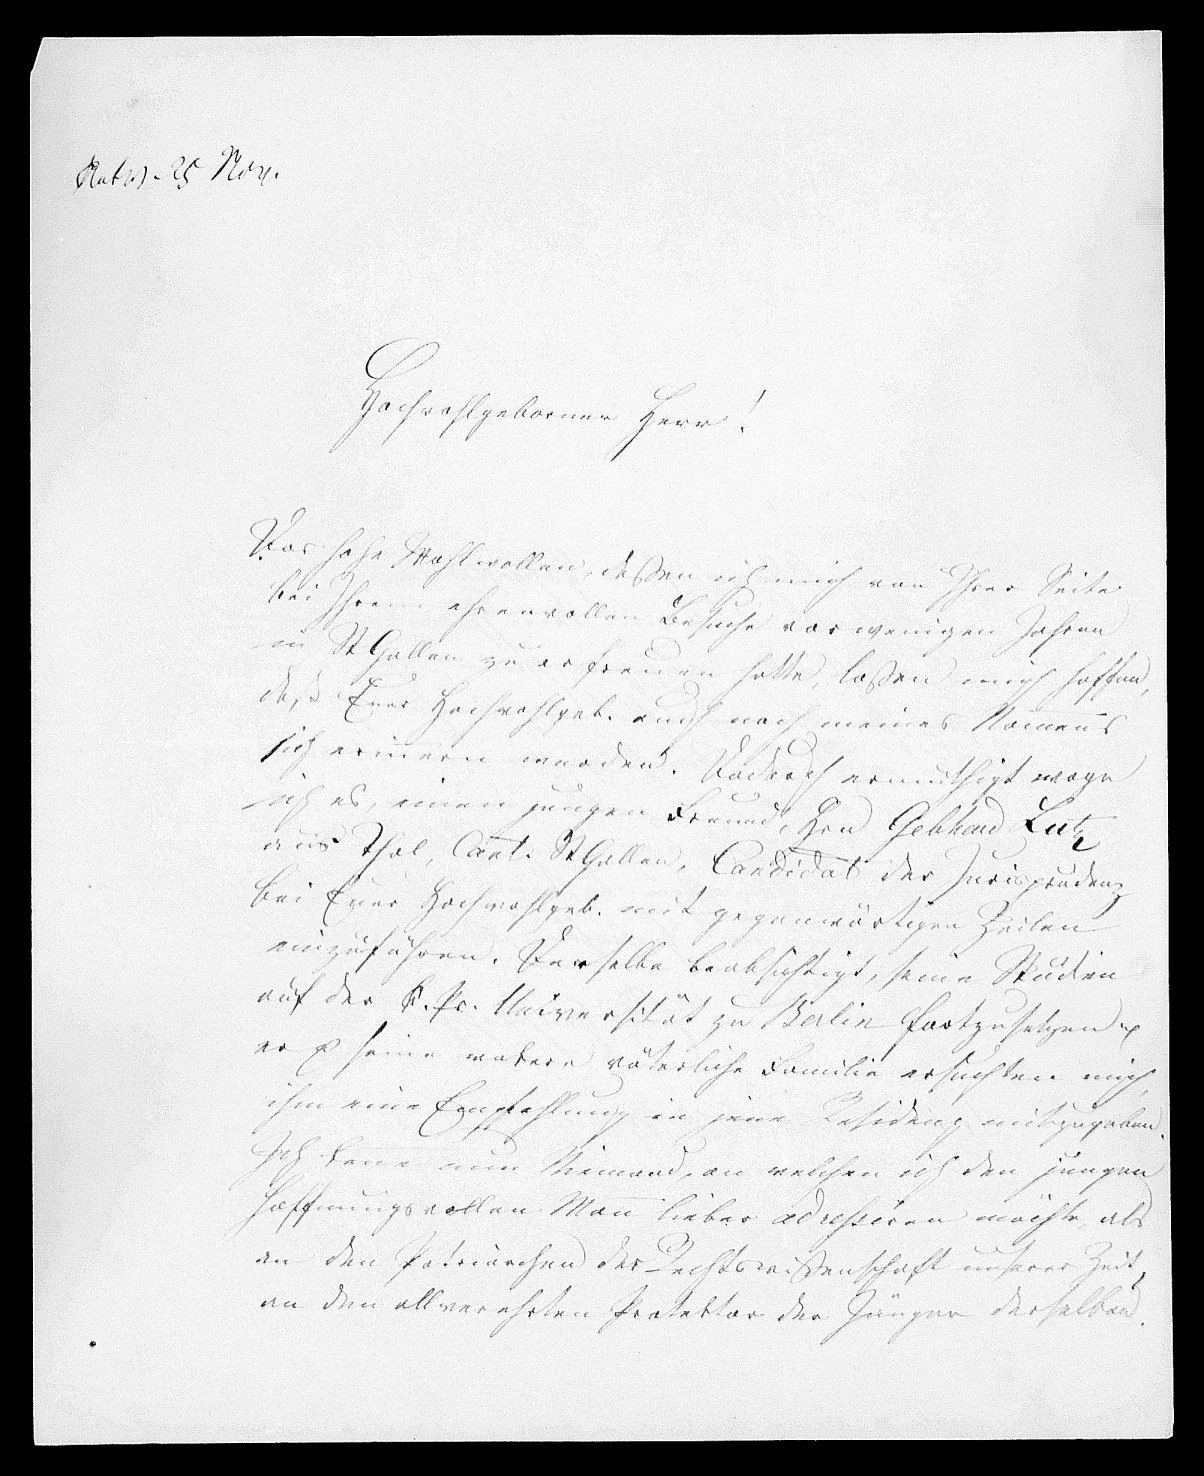 Antw. 25 Nov.
Hochwohlgeborner Herr!
Das hohe Wohlwollen, dessen ich mich von Ihrer Seite
bei Ihrem ehrenvollen Besuche vor wenigen Jahren
in St Gallen zu erfreuen hatte, lassen mich hoffen,
daß Euer Hochwohlgeb. auch noch meines Namens
sich erinnern werden. Dadurch ermuthigt wage
ich es, einen jungen Freund, Hrn Gebhard Lutz
aus Thal, Cant. St Gallen, Candidat der Jurisprudenz
bei Euer Hochwohlgeb. mit gegenwärtigen Zeilen
einzuführen. Derselbe beabsichtigt, seine Studien
auf der K. Pr. Universität zu Berlin fortzusetzen &
er & seine wakere väterliche Familie ersuchten mich,
ihm eine Empfehlung in jene Residenz mitzugeben.
Ich kenne nun Niemand, an welchen ich den jungen
hoffnungsvollen Mann lieber adressiren möchte, als
an den Patriarchen der Rechtswissenschaft unserer Zeit,
an den allverehrten Protektor der Jünger derselben.